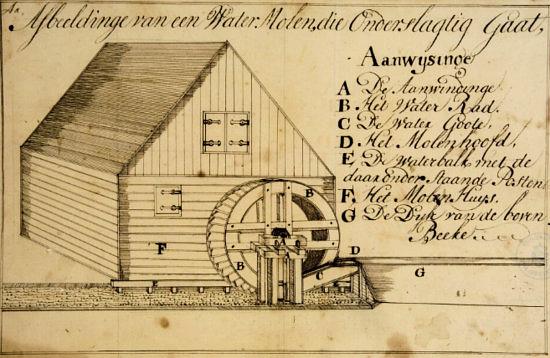 Afbeeldinge van een Water Molen, die Onderslagtig Gaat,
Aanwysinge
A De Aanwindinge
B. Het Water Rad.
C De Water Goote.
D. Het Molenhoofd.
E De Waterbalk met de
daar onder Staande Posten
F. Het Molen Huys.
G De Dyk van de boven
Beeke
B
F
B
D
C
G